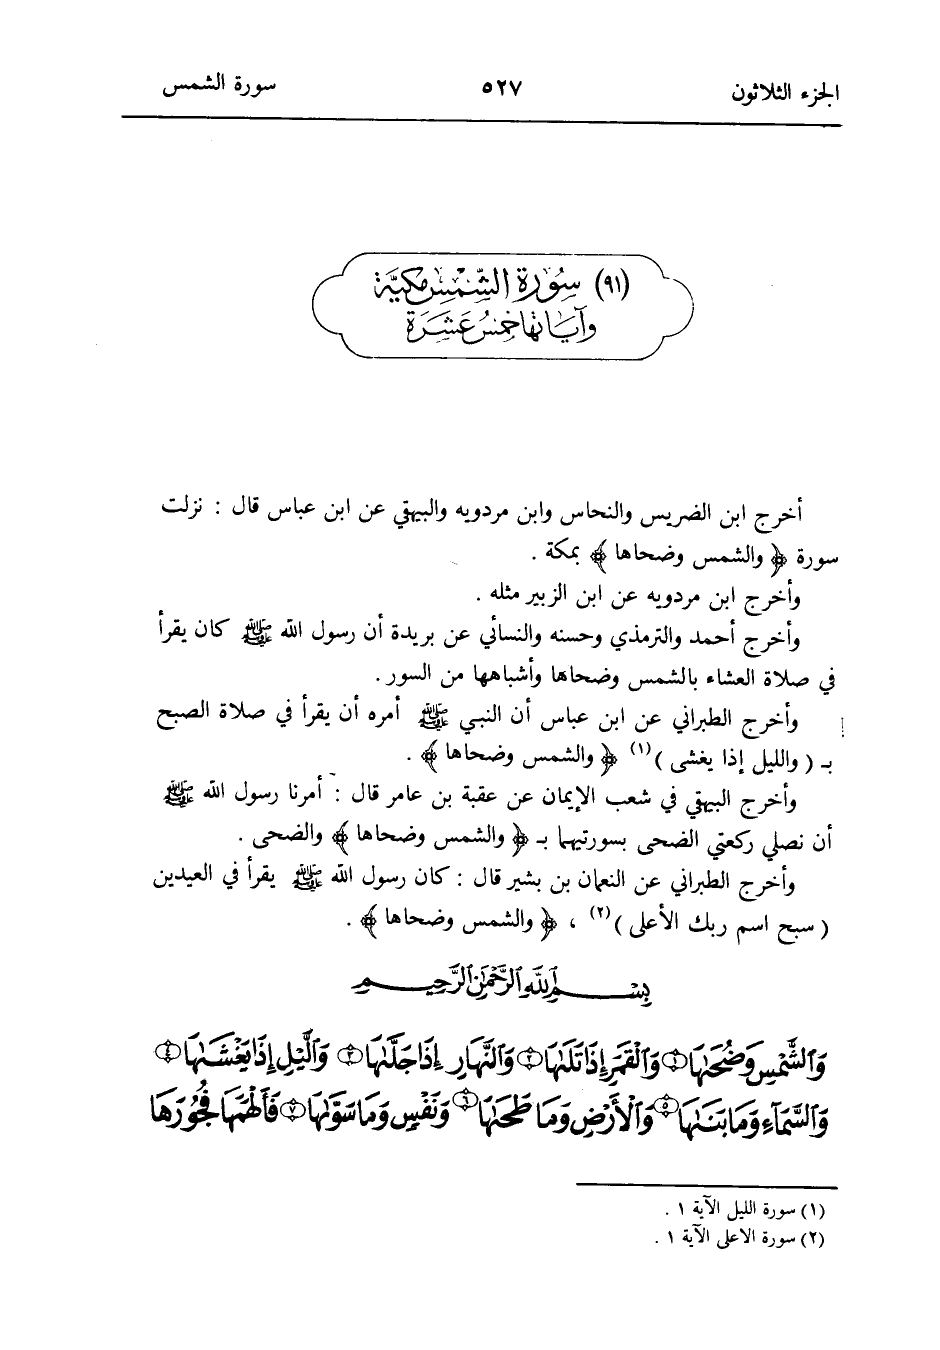 الجزء الثلاثون
٥٢٧
سورة الشمس
(٩١) سُورَة الشَّمْسِ مَكيَّة
وآيَاتهَا خمسُ عَشَرَة
أخرج ابن الضريس والنحاس وابن مردويه والبيهقي عن ابن عباس قال : نزلت
سورة ﴿ والشمس وضحاها ﴾ بمكة .
وأخرج ابن مردويه عن ابن الزبير مثله .
وأخرج أحمد والترمذي وحسنه والنسائي عن بريدة أن رسول الله ﷺ كان يقرأ
في صلاة العشاء بالشمس وضحاها وأشباهها من السور .
وأخرج الطبراني عن ابن عباس أن النبي ﷺ أمره أن يقرأ في صلاة الصبح
بـ ( والليل إذا يغشى )(١) ﴿ والشمس وضحاها ﴾ .
وأخرج البيهقي في شعب الإيمان عن عقبة بن عامر قال : أمرنا رسول الله ﷺ
أن نصلي ركعتي الضحى بسورتيهما بـ ﴿ والشمس وضحاها ﴾ والضحى .
وأخرج الطبراني عن النعمان بن بشير قال : كان رسول الله ﷺ يقرأ في العيدين
( سبح اسم ربك الأعلى )(٢) ، ﴿ والشمس وضحاها ﴾ .
بِسْمِ ٱللَّهِ ٱلرَّحْمَٰنِ ٱلرَّحِيمِ
وَٱلشَّمْسِ وَضُحَىٰهَا ١ وَٱلْقَمَرِ إِذَا تَلَىٰهَا ٢ وَٱلنَّهَارِ إِذَا جَلَّىٰهَا ٣ وَٱلَّيْلِ إِذَا يَغْشَىٰهَا ٤
وَٱلسَّمَآءِ وَمَا بَنَىٰهَا ٥ وَٱلْأَرْضِ وَمَا طَحَىٰهَا ٦ وَنَفْسٍ وَمَا سَوَّىٰهَا ٧ فَأَلْهَمَهَا فُجُورَهَا
(١) سورة الليل الآية ١ .
(٢) سورة الاعلى الآية ١ .